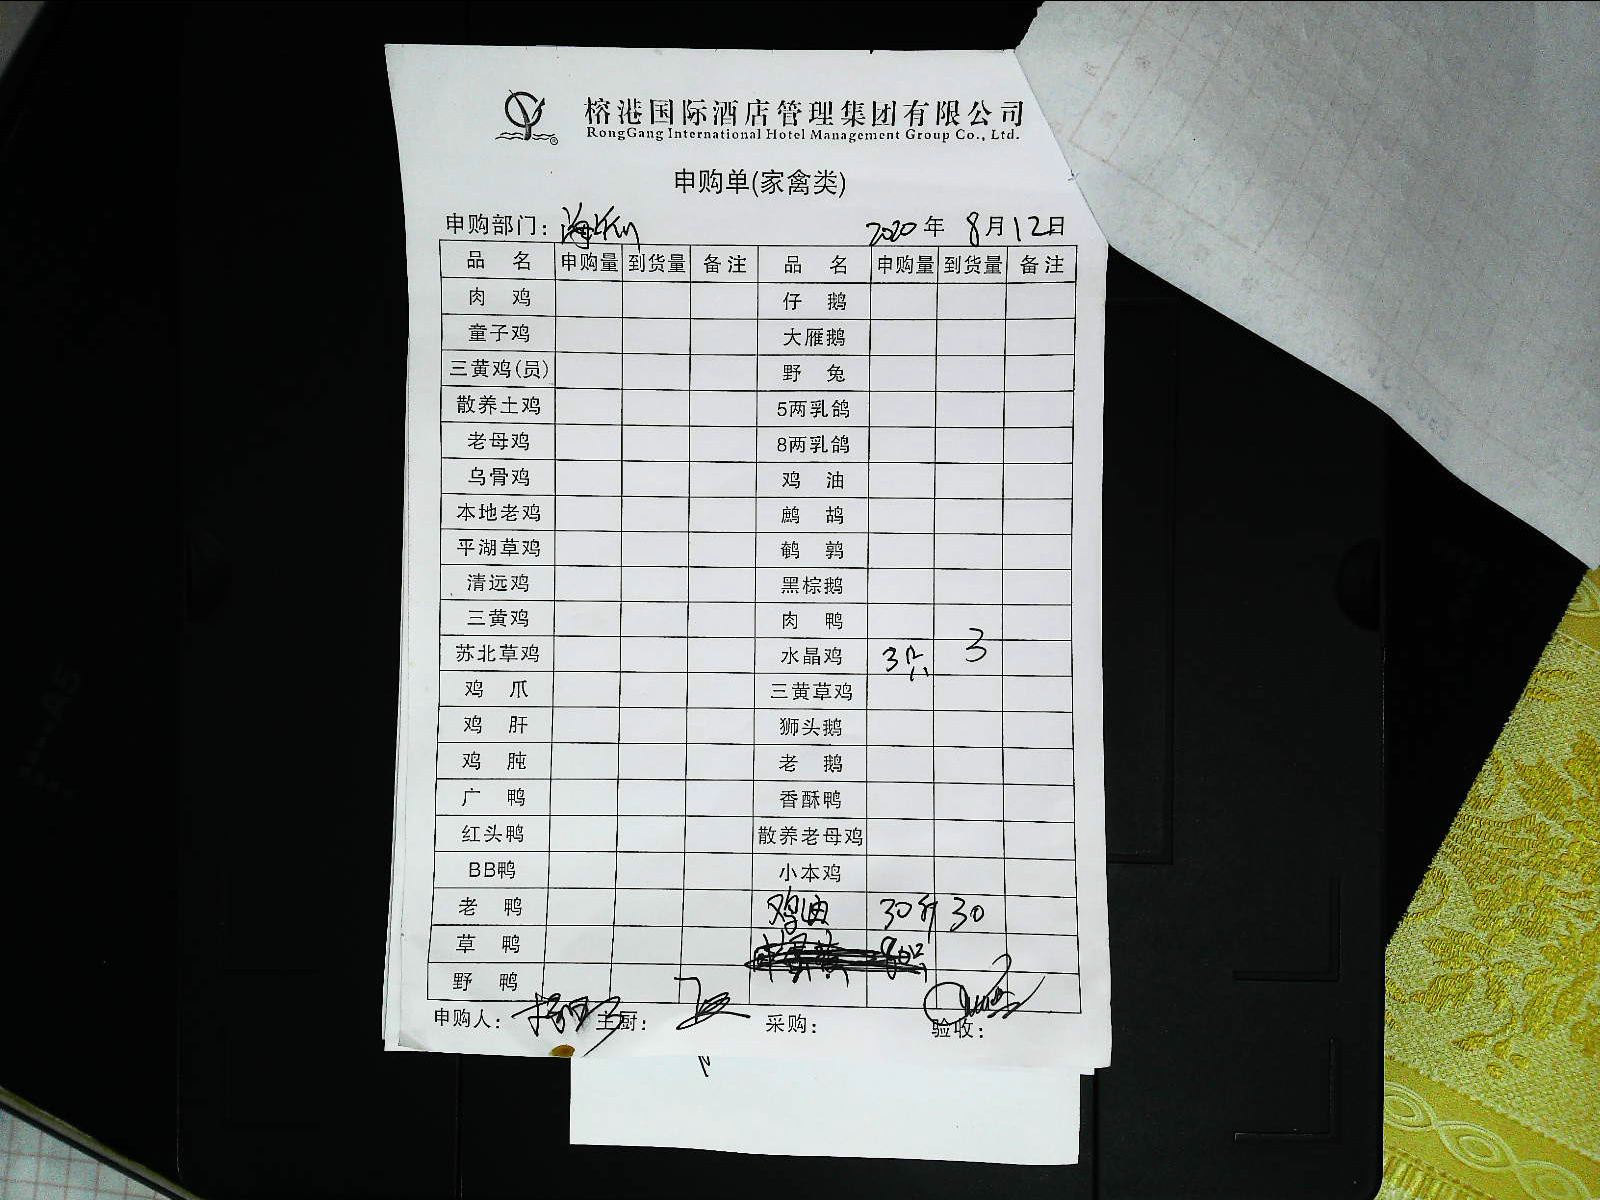 榕港国际酒店管理集团有限公司
RongGang International Hotel Management Group Co., Ltd.
申购单(家禽类)
申购部门: 2020年 8月12日
品 名 申购量 到货量 备注 品 名 申购量 到货量 备注
肉 鸡 仔 鹅
童子鸡 大雁鹅
三黄鸡(员) 野 兔
散养土鸡 5两乳鸽
老母鸡 8两乳鸽
乌骨鸡 鸡 油
本地老鸡 鹧 鸪
平湖草鸡 鹌 鹑
清远鸡 黑棕鹅
三黄鸡 肉 鸭
苏北草鸡 水晶鸡 3只 3
鸡 爪 三黄草鸡
鸡 肝 狮头鹅
鸡 肫 老 鹅
广 鸭 香酥鸭
红头鸭 散养老母鸡
BB鸭 小本鸡
老 鸭 鸡油 30斤 30
草 鸭
野 鸭
申购人: 主厨: 采购: 验收: